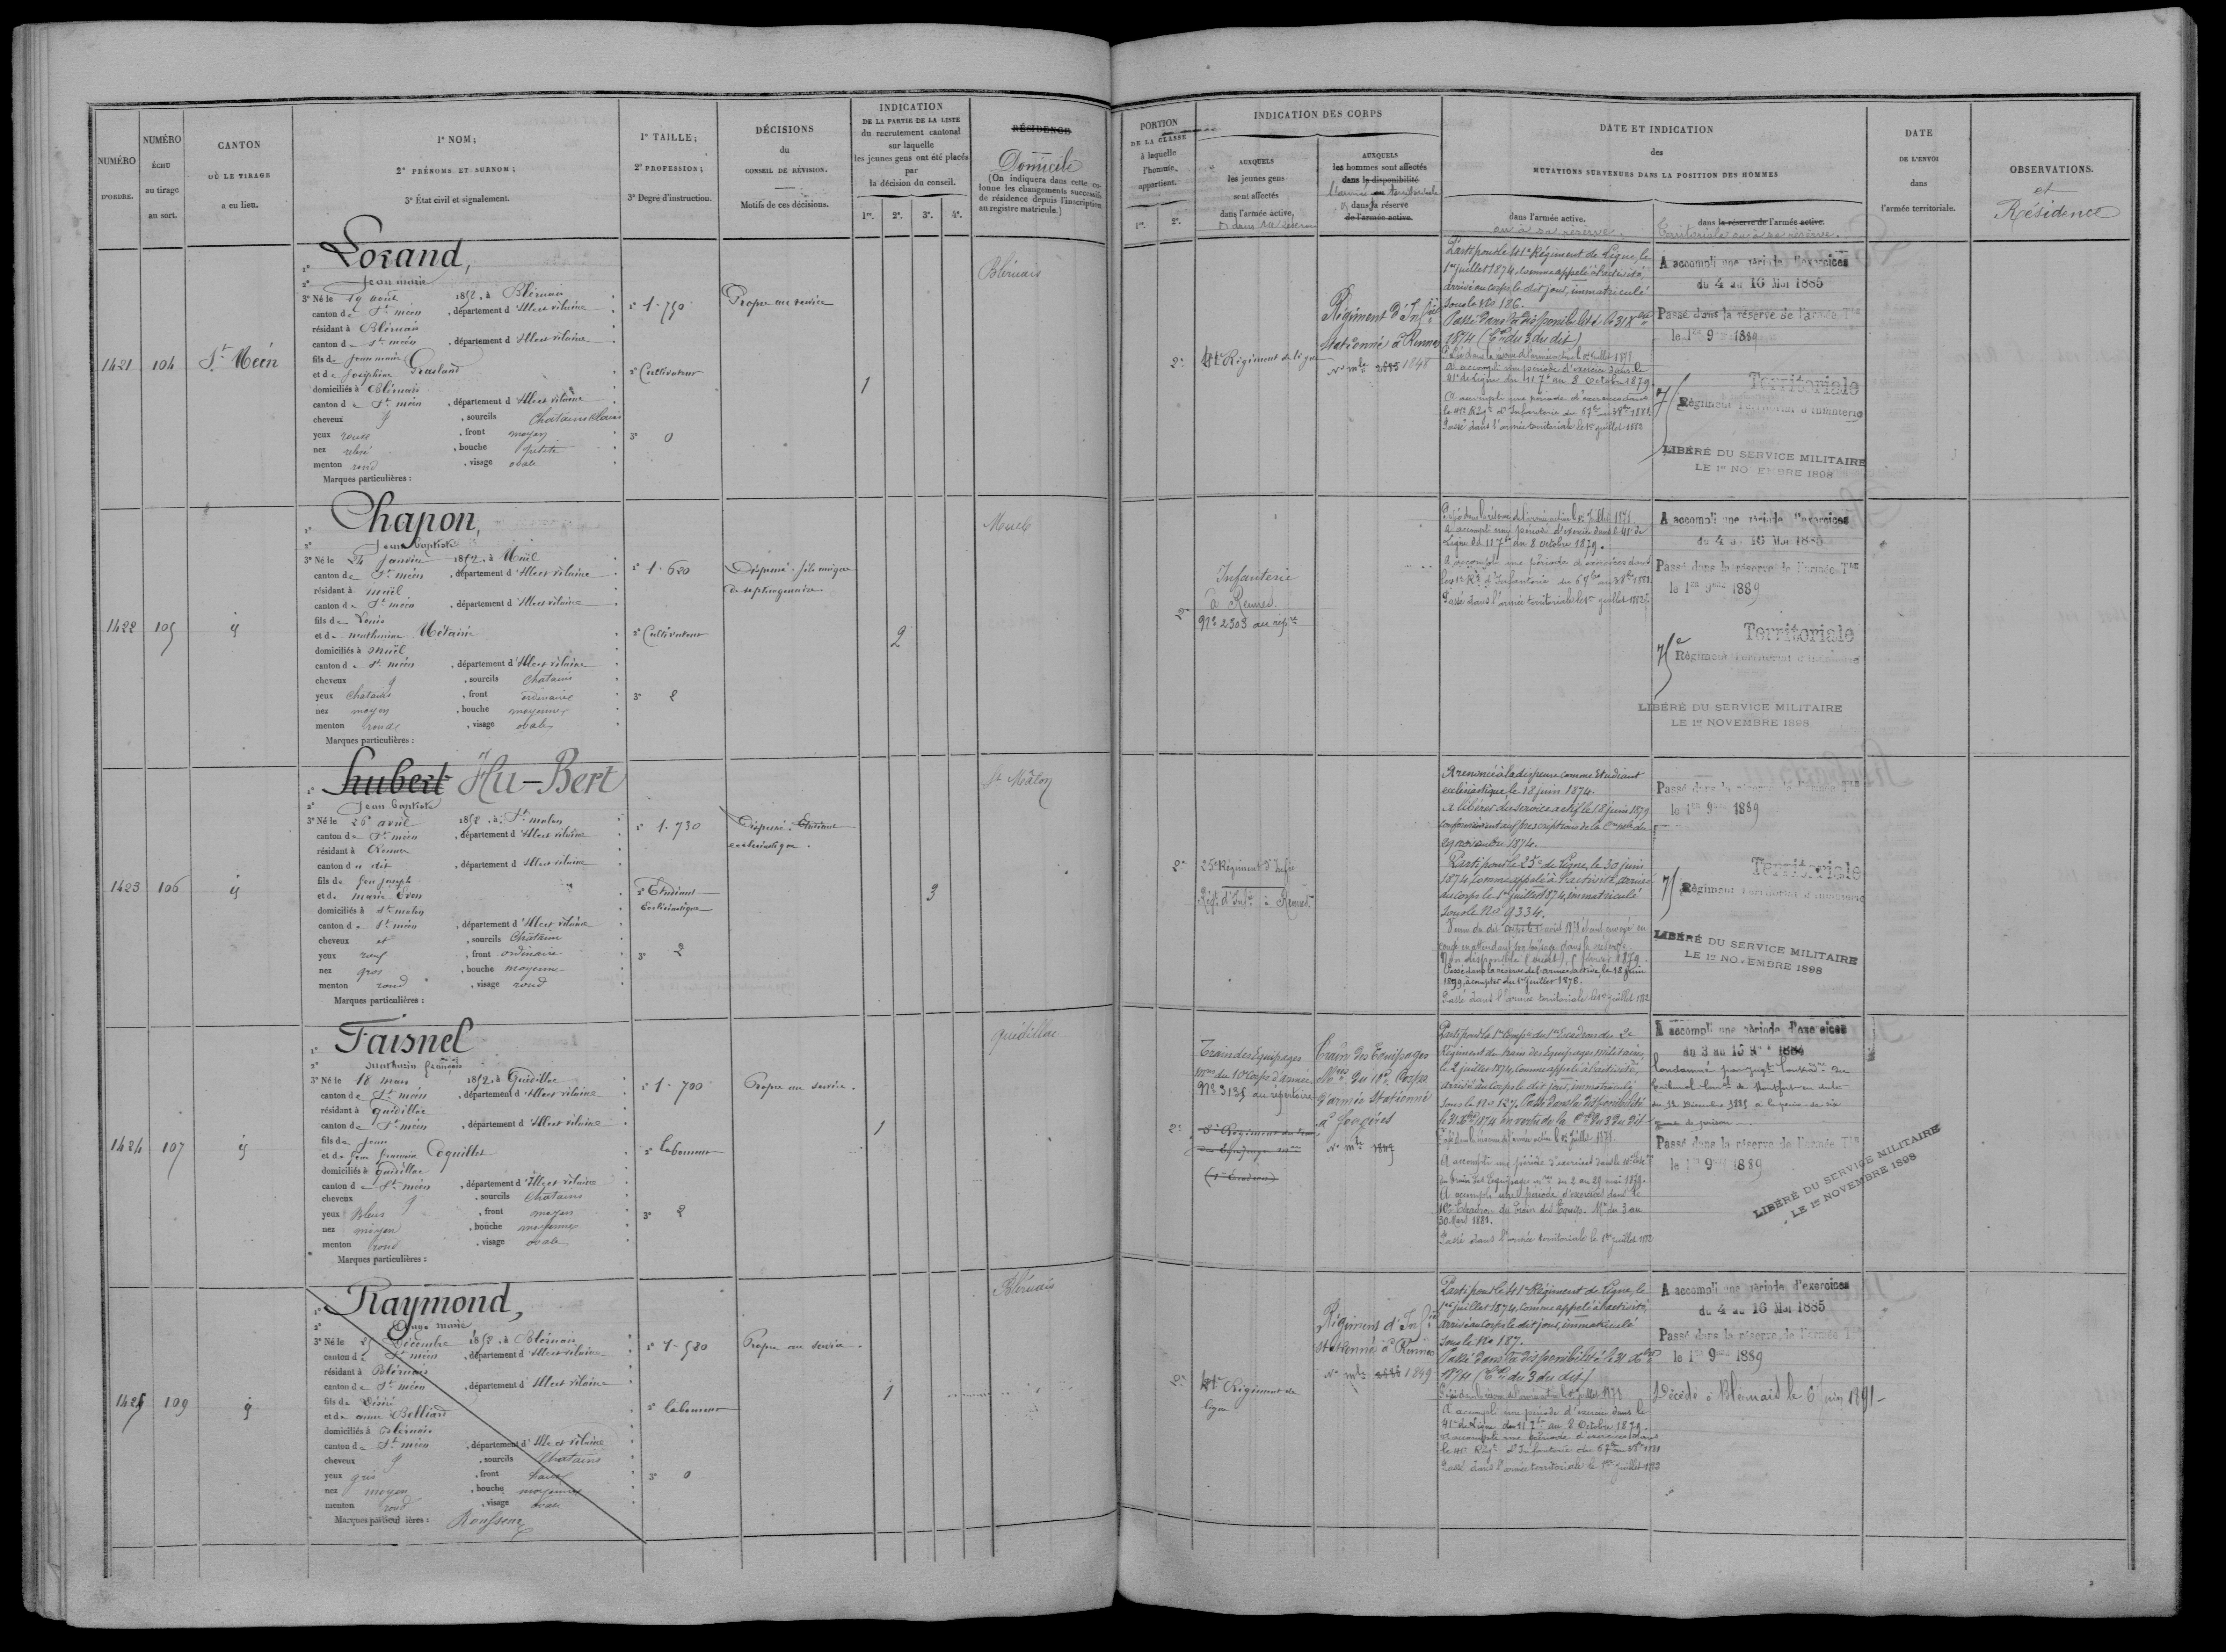 NUMÉRO
D'ORDRE.
NUMÉRO
ÉCHU
au tirage
au sort.
CANTON
OÙ LE TIRAGE
a eu lieu.
1° NOM;
2° PRÉNOMS ET SURNOM;
3° État civil et signalement.
1° TAILLE;
2° PROFESSION;
3° Degré d'instruction.
DÉCISIONS
du
CONSEIL DE RÉVISION.
Motifs de ces décisions.
INDICATION
DE LA PARTIE DE LA LISTE
du recrutement cantonal
sur laquelle
les jeunes gens ont été placés
par
la décision du conseil.
1re. 2e. 3e. 4e.
RÉSIDENCE
Domicile
(On indiquera dans cette co-
lonne les changements successifs
de résidence depuis l'inscription
au registre matricule.)
PORTION
DE LA CLASSE
à laquelle
l'homme
appartient.
1re. 2e.
INDICATION DES CORPS
AUXQUELS
les jeunes gens
sont affectés
dans l'armée active,
AUXQUELS
les hommes sont affectés
dans la disponibilité
dans la réserve
de l'armée active.
DATE ET INDICATION
des
MUTATIONS SURVENUES DANS LA POSITION DES HOMMES
dans l'armée active.
ou à sa réserve.
dans la réserve de l'armée active.
Territoriale ou à sa réserve.
DATE
DE L'ENVOI
dans
l'armée territoriale.
OBSERVATIONS.
et
Résidence
1421 104 St Méen
Lorand,
Jean marie
3° Né le 19 août 1852, à Blérnais
canton de St méen, département d'Illeet vilaine
résidant à Blérnais
canton de St méen, département d'Illeet vilaine
fils de Jean marie
et de Joséphine Grasland
domiciliés à Blérnais
canton de St méen, département d'Illeet vilaine
cheveux, sourcils Chatains clairs
yeux roux, front moyen
nez relevé, bouche petite
menton rond, visage ovale
Marques particulières :
1° 1.750
2° Cultivateur
3° 0
Propre au service
1
Blérnais
2e
41e Régiment de ligne
Régiment d'Infie
stationné à Rennes
No mle 2685 1848
Parti pour le 41e Régiment de Ligne, le
1er juillet 1874, comme appelé à l'activité,
arrivé au corps le dit jour, immatriculé
sous le No 126.
Passé dans la disponibilité le 31 Xbre
1874 (Con du 3 du dit)
A accompli une période d'exercices dans le
41e de Ligne du 11 7bre au 8 Octobre 1879.
Passé dans l'armée territoriale le 1er juillet 1882
A accompli une période d'exercices
du 4 au 16 Mai 1885
Passé dans la réserve de l'armée Tle
le 1er 9bre 1889
Territoriale
Régiment Territorial d'Infanterie
LIBÉRÉ DU SERVICE MILITAIRE
LE 1er NOVEMBRE 1898
1422 105 id
Chapon,
Jean baptiste
3° Né le 24 janvier 1852, à Muël
canton de St méen, département d'Illeet vilaine
résidant à muël
canton de St méen, département d'Illeet vilaine
fils de Louis
et de mathurine Métairie
domiciliés à muël
canton de St méen, département d'Illeet vilaine
cheveux, sourcils Chatains
yeux Chatains, front ordinaire
nez moyen, bouche moyenne
menton rond, visage ovale
Marques particulières :
1° 1.620
2° Cultivateur
3° 2
Dispensé. fils unique
de septuagénaire.
2
Muel
2e
Infanterie
à Rennes.
No 2303 au répre
A accompli une période d'exercices dans le 41e de
Ligne du 11 7bre au 8 octobre 1879.
Passé dans l'armée territoriale le 1er juillet 1882
A accompli une période d'exercices
du 4 au 16 Mai 1885
Passé dans la réserve de l'armée Tle
le 1er 9bre 1889
Territoriale
Régiment Territorial d'Infanterie
LIBÉRÉ DU SERVICE MILITAIRE
LE 1er NOVEMBRE 1898
1423 106 id
hubert Hu-Bert
Jean baptiste
3° Né le 26 avril 1852, à St malon
canton de St méen, département d'Illeet vilaine
résidant à Rennes
canton du dit, département d'Illeet vilaine
fils de feu joseph
et de marie Even
domiciliés à St malon
canton de St méen, département d'Illeet vilaine
cheveux et, sourcils Chatains
yeux roux, front ordinaire
nez gros, bouche moyenne
menton rond, visage rond
Marques particulières :
1° 1.730
2° Etudiant
Ecclésiastique
3° 2
Dispensé. Etudiant
ecclésiastique.
3
St Malon
2e
25e Régiment d'Infie
Régt d'Infie à Rennes
A renoncé à la dispense comme Etudiant
ecclésiastique, le 18 juin 1874.
A libérer du service actif le 18 juin 1879
conformément aux prescriptions de la
29 novembre 1874.
Parti pour le 25e de Ligne, le 30 juin
1874, comme appelé à l'activité, arrivé
au corps le 1er juillet 1874, immatriculé
sous le No 9334.
Passé dans la réserve de l'armée active, le 18 juin
1879, à compter du 1er juillet 1878.
Passé dans l'armée territoriale le 1er juillet 1882
Passé dans la réserve de l'armée Tle
le 1er 9bre 1889
Territoriale
Régiment Territorial d'Infanterie
LIBÉRÉ DU SERVICE MILITAIRE
LE 1er NOVEMBRE 1898
1424 107 id
Faisnel
mathurin françois
3° Né le 18 mars 1852, à Quédillac
canton de St méen, département d'Illeet vilaine
résidant à quédillac
canton de St méen, département d'Illeet vilaine
fils de Jean
et de Coquillet
domiciliés à quédillac
canton de St méen, département d'Illeet vilaine
cheveux, sourcils Chatains
yeux Bleus, front moyen
nez moyen, bouche moyenne
menton rond, visage ovale
Marques particulières :
1° 1.700
2° laboureur
3° 2
Propre au service.
1
quédillac
2e
Train des Equipages
mres du 10e Corps d'armée
No 3135 du répertoire
(1er Escadron)
Train des Equipages
Mres du 10e Corps
d'armée stationné
à Fougères
No mle 1809
Régiment du train des Equipages militaires,
le 2 juillet 1874, comme appelé à l'activité,
arrivé au corps le dit jour, immatriculé
sous le No 127. Passé dans la disponibilité
le 31 Xbre 1874 en vertu de la Con du 3 du dit
A accompli une période d'exercices dans le
10e Escadron du Train des Equip. Mres du 3 au
30 Mars 1881.
Passé dans l'armée territoriale le 1er juillet 1882
A accompli une période d'exercices
du 3 au 15 1884
Passé dans la réserve de l'armée Tle
le 1er 9bre 1889
LIBÉRÉ DU SERVICE MILITAIRE
LE 1er NOVEMBRE 1898
1425 109 id
Raymond,
marie
3° Né le 25 Décembre 1852, à Blérnais
canton de St méen, département d'Illeet vilaine
résidant à Blérnais
canton de St méen, département d'Illeet vilaine
fils de Désiré
et de anne Bolliard
domiciliés à Blérnais
canton de St méen, département d'Ille et vilaine
cheveux, sourcils Chatains
yeux gris, front haut
nez moyen, bouche moyenne
menton rond, visage ovale
Marques particulières : Rousseur
1° 1.580
2° laboureur
3° 0
Propre au service.
1
Blérnais
2e
41e Régiment de
ligne
Régiment d'Infie
stationné à Rennes
No mle 2686 1849
Parti pour le 41e Régiment de Ligne, le
1er juillet 1874, comme appelé à l'activité,
arrivé au corps le dit jour, immatriculé
sous le No 187.
Passé dans la disponibilité le 31 Xbre
1874 (Con du 3 du dit)
A accompli une période d'exercices dans le
41e de Ligne du 11 7bre au 8 Octobre 1879.
A accompli une période d'exercices dans
Passé dans l'armée territoriale le 1er juillet 1883
A accompli une période d'exercices
du 4 au 16 Mai 1885
Passé dans la réserve de l'armée Tle
le 1er 9bre 1889
Décédé à Blérnais le 6 juin 1891